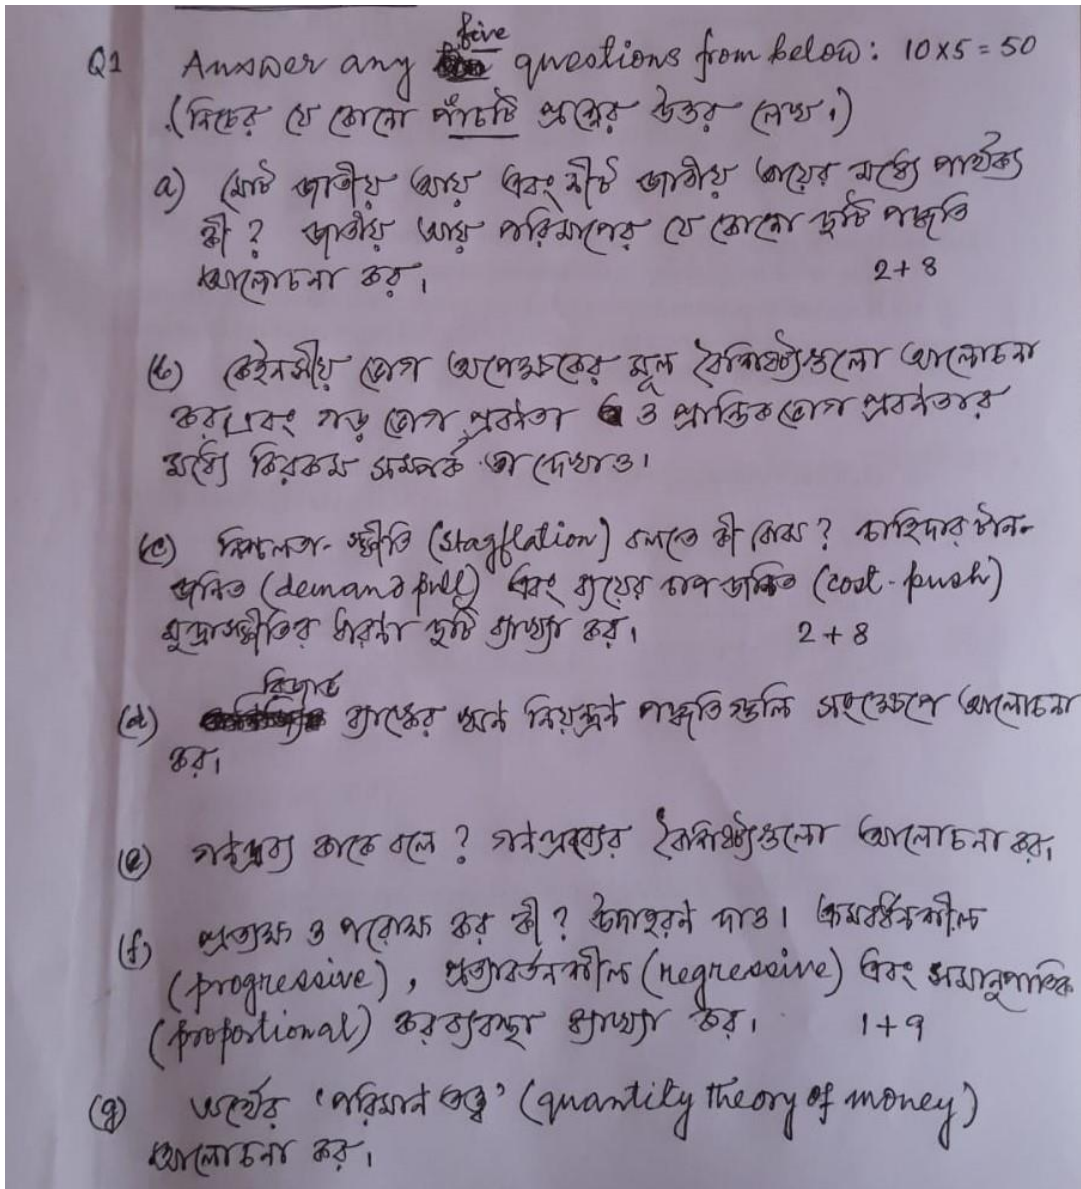 Q1 Answer any five questions from below: 10×5=50
(নিচের যে কোনো পাঁচটি প্রশ্নের উত্তর লেখ।)
a) মোট জাতীয় আয় এবং নীট জাতীয় আয়ের মধ্যে পার্থক্য
কী? জাতীয় আয় পরিমাপের যে কোনো দুটি পদ্ধতি
আলোচনা কর। 2+8
(b) কেইনসীয় ভোগ অপেক্ষকের মূল বৈশিষ্ট্যগুলো আলোচনা
কর এবং গড় ভোগ প্রবণতা ও প্রান্তিক ভোগ প্রবণতার
মধ্যে কিরকম সম্পর্ক তা দেখাও।
(c) নিশ্চলতা-স্ফীতি (stagflation) বলতে কী বোঝ? চাহিদার টান-
জনিত (demand pull) এবং ব্যয়ের চাপ জনিত (cost-push)
মুদ্রাস্ফীতির ধারণা দুটি ব্যাখ্যা কর। 2+8
(d) রিজার্ভ ব্যাঙ্কের ঋণ নিয়ন্ত্রণ পদ্ধতিগুলি সংক্ষেপে আলোচনা
কর।
(e) গণদ্রব্য কাকে বলে? গণদ্রব্যের বৈশিষ্ট্যগুলো আলোচনা কর।
(f) প্রত্যক্ষ ও পরোক্ষ কর কী? উদাহরণ দাও। ক্রমবর্ধনশীল
(progressive), প্রত্যাবর্তনশীল (regressive) এবং সমানুপাতিক
(proportional) করব্যবস্থা ব্যাখ্যা কর। 1+9
(g) অর্থের 'পরিমাণ তত্ত্ব' (quantity theory of money)
আলোচনা কর।